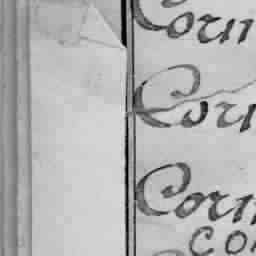 Corn
Corn
Corn
co